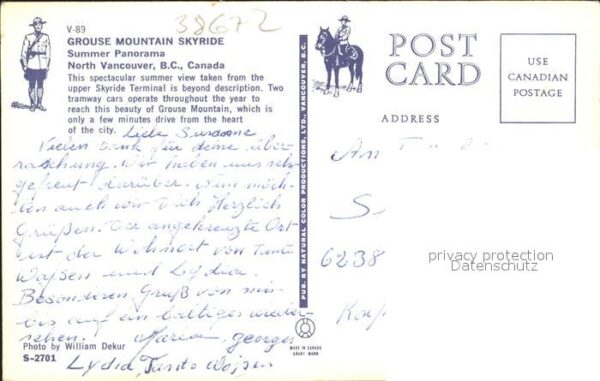 38672
V-89
GROUSE MOUNTAIN SKYRIDE
Summer Panorama
North Vancouver, B.C., Canada
This spectacular summer view taken from the
upper Skyride Terminal is beyond description. Two
tramway cars operate throughout the year to
reach this beauty of Grouse Mountain, which is
only a few minutes drive from the heart
of the city.
Liebe Susanne
Vielen Dank für deine über-
raschung. Wir haben uns sehr
gefreut darüber. Nun möch-
ten auch wir Dich Herzlich
Grüßen. Der angekreuzte Ort
ist der Wohnort von Tante
und Lydia.
Besonderen Gruß von mir
bis auf ein baldiges wieder-
sehen. Maria, Georges
Lydia, Tante
Photo by William Dekur
S-2701
PUB. BY NATURAL COLOR PRODUCTIONS, LTD., VANCOUVER, B.C.
MADE IN CANADA
POST
CARD
ADDRESS
USE
CANADIAN
POSTAGE
An
S
6238
privacy protection
Datenschutz